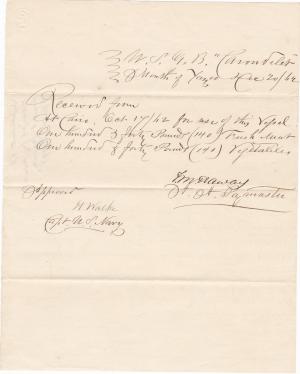 U. S. G. B. "Carondelet
Mouth of Yazoo Dec 20/62
Received from
at Cairo, Oct. 17/62 for use of this Vessel
One hundred & forty Pounds (140) Fresh Meat
One hundred & forty Pounds (140) Vegetables
Paymaster
Approved
H Walke
Capt U. S. Navy